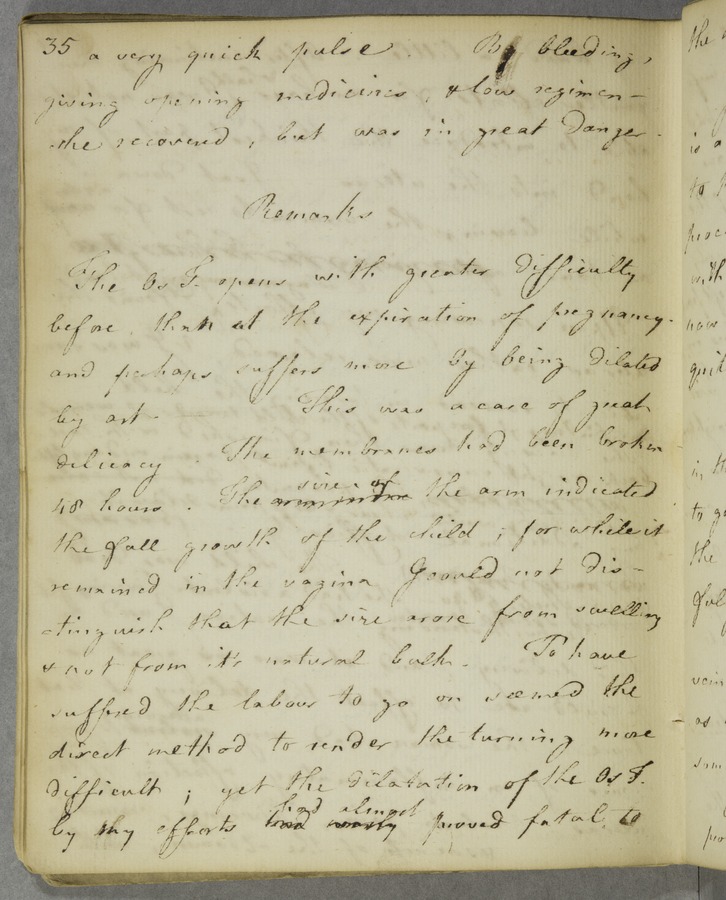 35 a very quick pulse. By bleeding,
giving opening medicines, & low regimen-
she recovered, but was in great danger.
Remarks
The Os T. opens with greater difficulty
before, than at the expiration of pregnancy.
and perhaps suffers more by being dilated
by art- This was a case of great
delicacy. The membranes had been broken
size of
48 hours. The the arm indicated
the full growth of the child; for while it
remained in the vagina I could not dis-
-tinguish that the size arose from swelling
& not from it's natural bulk. To have
suffred the labour to go on seemed the
direct method to render the turning more
difficult; yet the dilatation of the Os T.
had almost
by my efforts had nearly proved fatal to
the
to